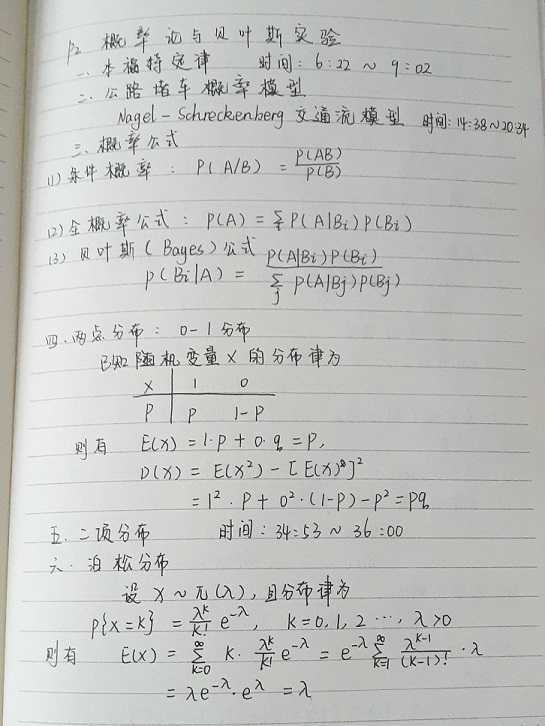 P2 概率论与贝叶斯实验
一、本福特定律 时间: 6:22 ~ 9:02
二、公路堵车概率模型
Nagel-Schreckenberg 交通流模型 时间:14:38~20:34
三、概率公式
(1) 条件概率: P(A/B) = P(AB)/P(B)
(2) 全概率公式: P(A) = Σ_i P(A|Bi) P(Bi)
(3) 贝叶斯 (Bayes) 公式
P(Bi|A) = P(A|Bi)P(Bi) / Σ_j P(A|Bj)P(Bj)
四、两点分布: 0-1分布
已知随机变量X的分布律为
X 1 0
P P 1-P
则有 E(X) = 1·P + 0·q = P,
D(X) = E(X²) - [E(X)]²
= 1²·P + 0²·(1-P) - P² = Pq
五、二项分布 时间: 34:53 ~ 36:00
六、泊松分布
设 X ~ π(λ), 且分布律为
P{X=K} = λ^K/K! e^-λ, K=0,1,2 ⋯, λ>0
则有 E(X) = Σ_{K=0}^∞ K· λ^K/K! e^-λ = e^-λ Σ_{K=1}^∞ λ^{K-1}/(K-1)! ·λ
= λe^-λ·e^λ = λ